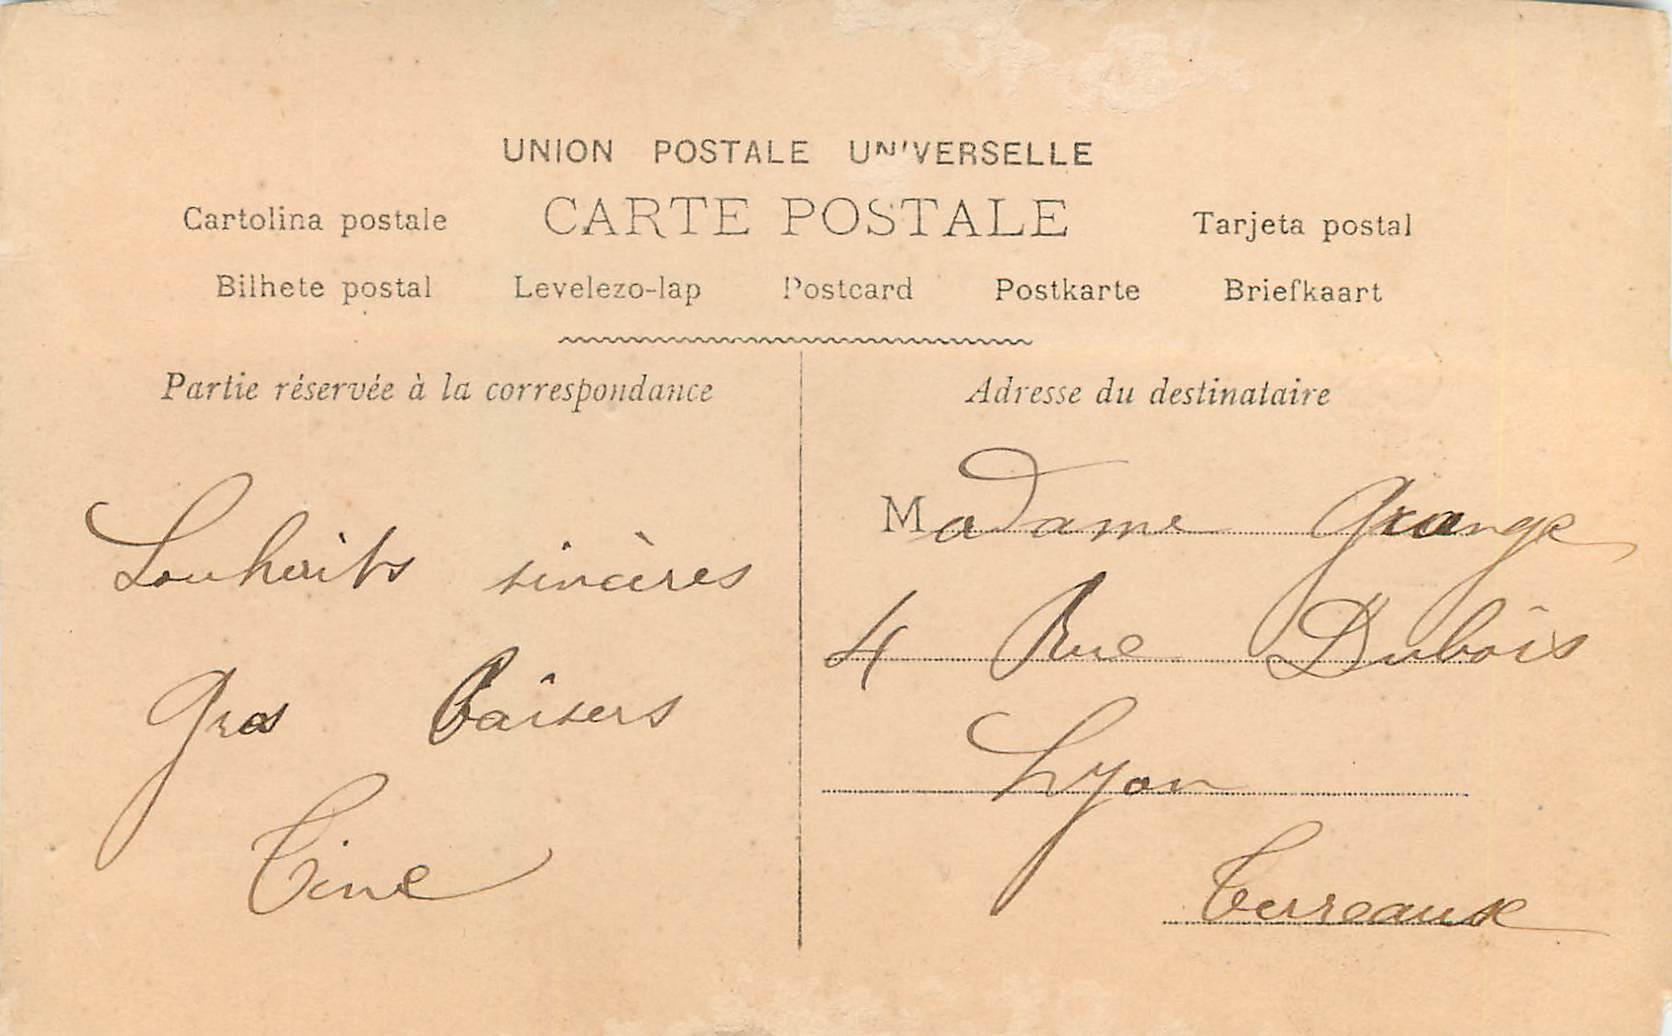 UNION POSTALE UNIVERSELLE
Cartolina postale CARTE POSTALE Tarjeta postal
Bilhete postal Levelezo-lap Postcard Postkarte Briefkaart
Partie réservée à la correspondance
Souhaits sincères
Gros Baîsers
Tine
Adresse du destinataire
Madame Grange
4 Rue Duboîs
Lyon
Terreaux